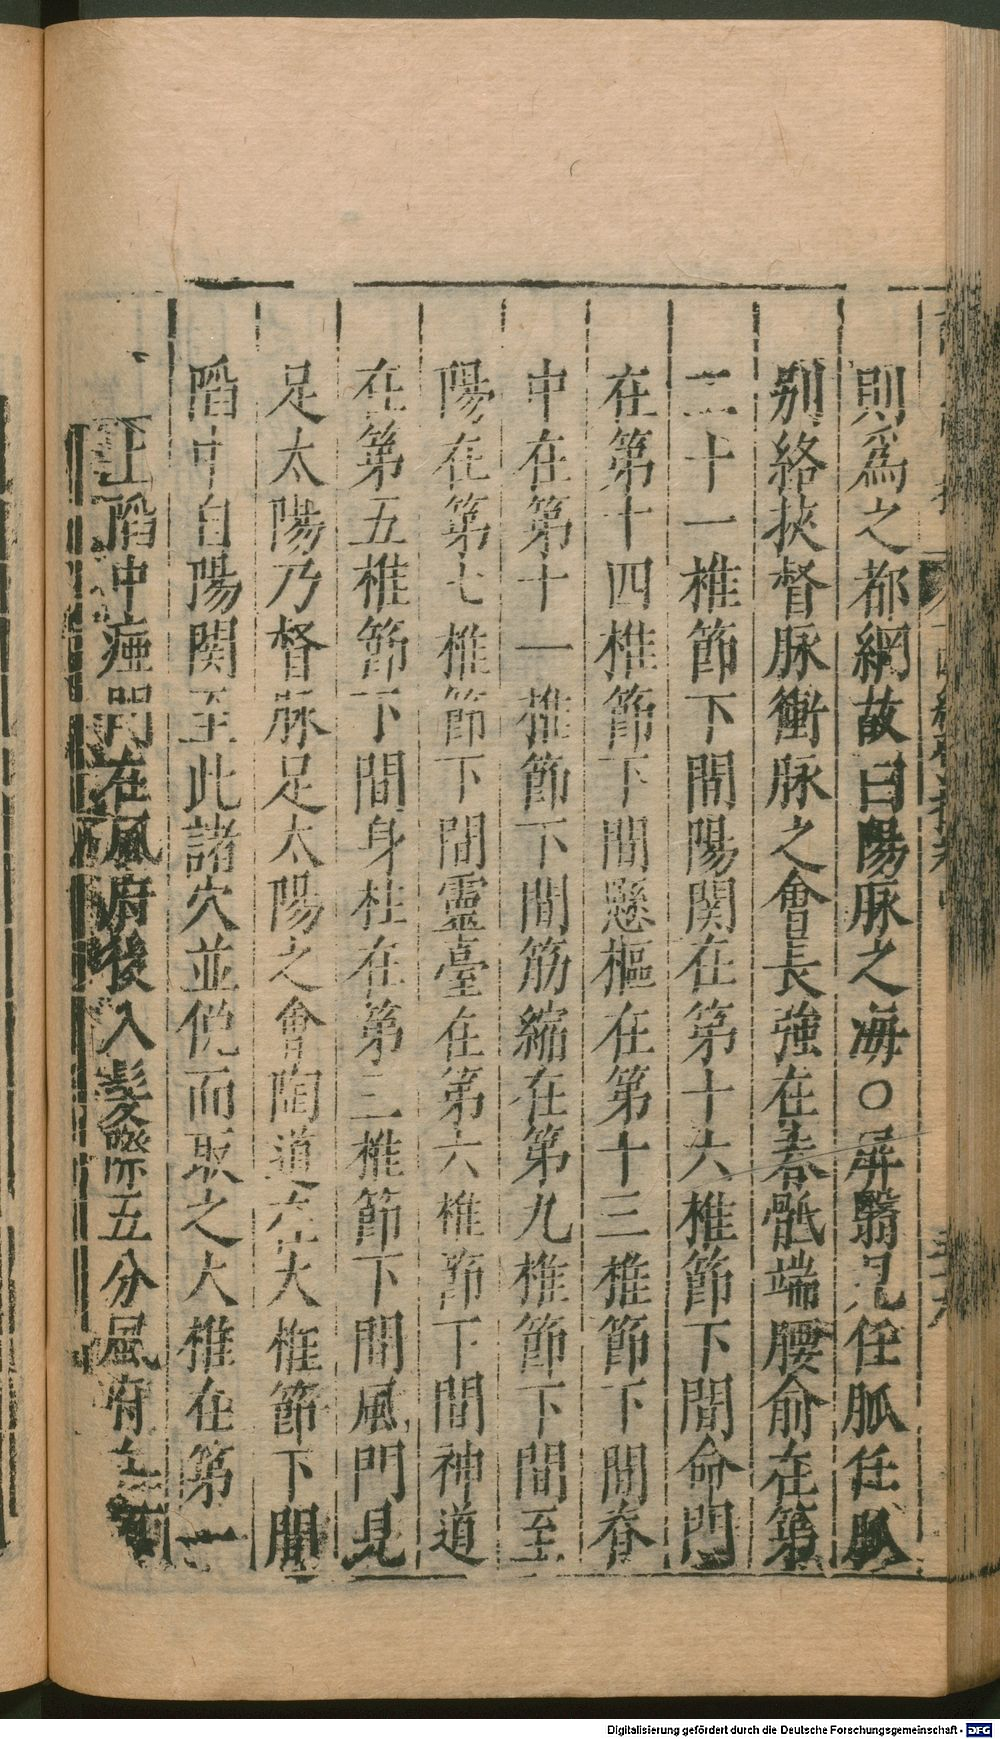 則爲之都網故曰陽脉之海○屏翳見任脈任脈
别絡挾督脉衝脉之會長強在脊骶端腰俞在第
二十一椎節下間陽関在第十六椎節下間命門
在第十四椎節下間懸樞在第十三椎節下間脊
中在第十一椎節下間筋縮在第九椎節下間至
陽在第七椎節下間靈臺在第六椎節下間神道
在第五椎節下間身柱在第三椎節下間風門見
足太陽乃督脉足太陽之會陶道在大椎節下間
陷中自陽関至此諸穴並俛而取之大椎在第一
上陷中瘂門在風府後入髮際五分風府在
Digitalisierung gefördert durch die Deutsche Forschungsgemeinschaft - DFG